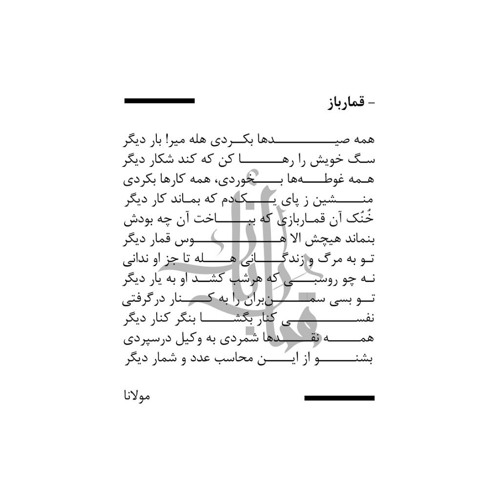 - قمارباز
همه صیدها بکردی هله میر! بار دیگر
سگ خویش را رها کن که کند شکار دیگر
همه غوطه‌ها بخوردی، همه کارها بکردی
منشین ز پای یکدم که بماند کار دیگر
خُنُک آن قماربازی که بباخت آن چه بودش
بنماند هیچش الا هوس قمار دیگر
تو به مرگ و زندگانی هله تا جز او ندانی
نه چو روسبی که هرشب کشد او به یار دیگر
تو بسی سمن‌بران را به کنار درگرفتی
نفسی کنار بگشا بنگر کنار دیگر
همه نقدها شمردی به وکیل درسپردی
بشنو از این محاسب عدد و شمار دیگر
مولانا